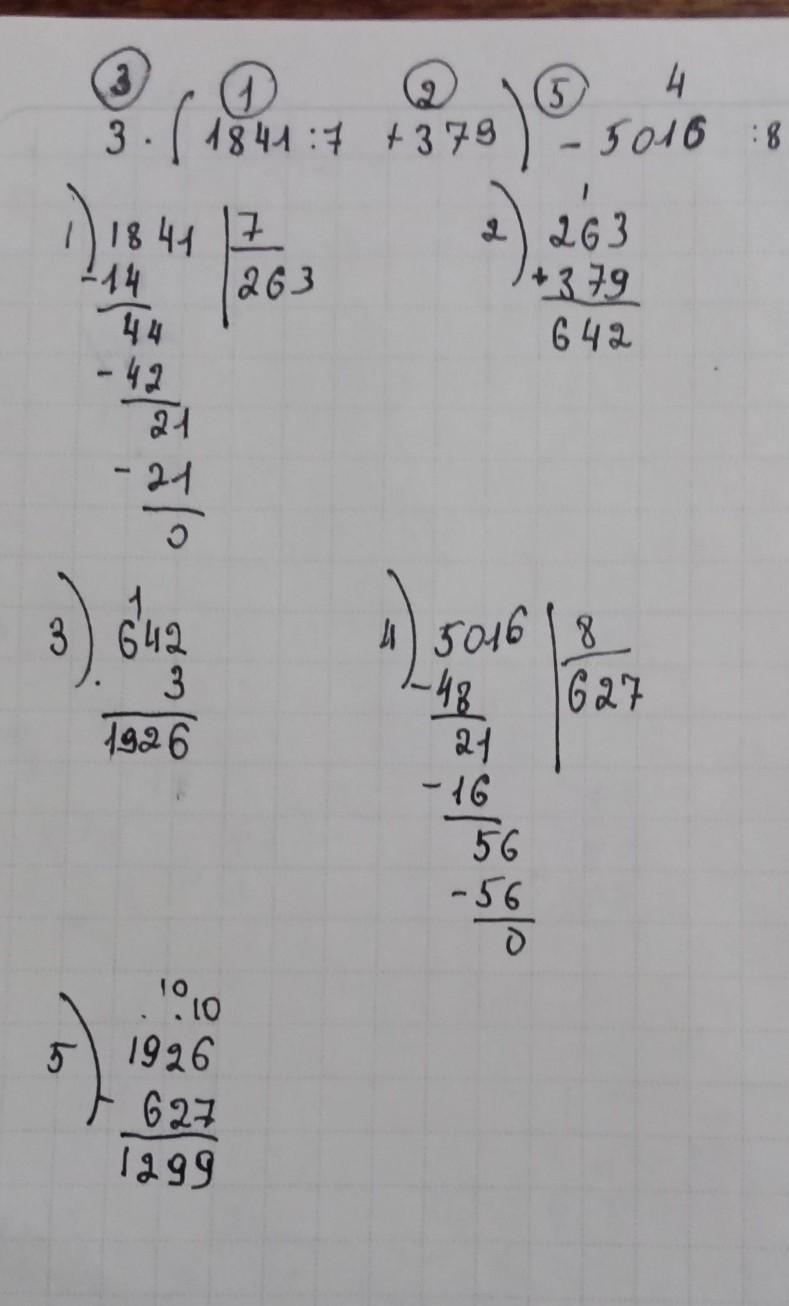 3 1 2 5 4
3 · ( 1841 : 7 + 379 ) - 5016 : 8
1) 1841 | 7
-14 263
44
-42
21
-21
0
2) 1
263
+379
642
3) 1
642
· 3
1926
4) 5016 | 8
-48 627
21
-16
56
-56
0
5) . 10 . 10
1926
- 627
1299